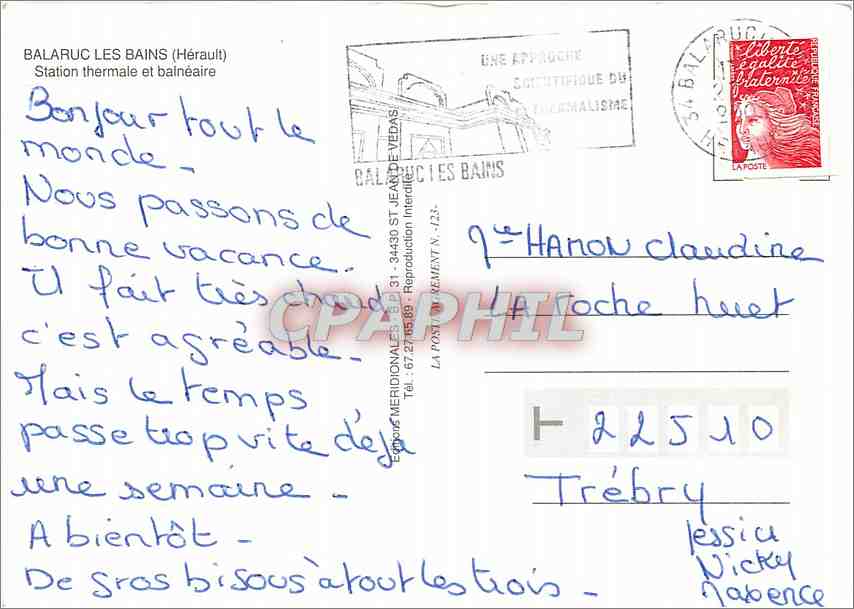 BALARUC LES BAINS (Hérault)
Station thermale et balnéaire
Bonjour tout le
monde -
Nous passons de
bonne vacance.
Il fait très chaud
c'est agréable -
Mais le temps
passe trop vite déjà
une semaine -
A bientôt -
De gros bisous à tout les trois -
Editions MERIDIONALES - B.P. 31 - 34430 ST JEAN DE VEDAS
Tél. : 67.27.65.89 - Reproduction Interdite
LA POSTE AGREMENT N. -123-
UNE APPROCHE
SCIENTIFIQUE DU
THERMALISME
BALARUC LES BAINS
34 BALARUC
liberté
égalité
fraternité
RÉPUBLIQUE FRANÇAISE
LA POSTE
HAMON Claudine
LA roche huet
22510
Trébry
Jessica
Nicky
Maxence
CPAPHIL